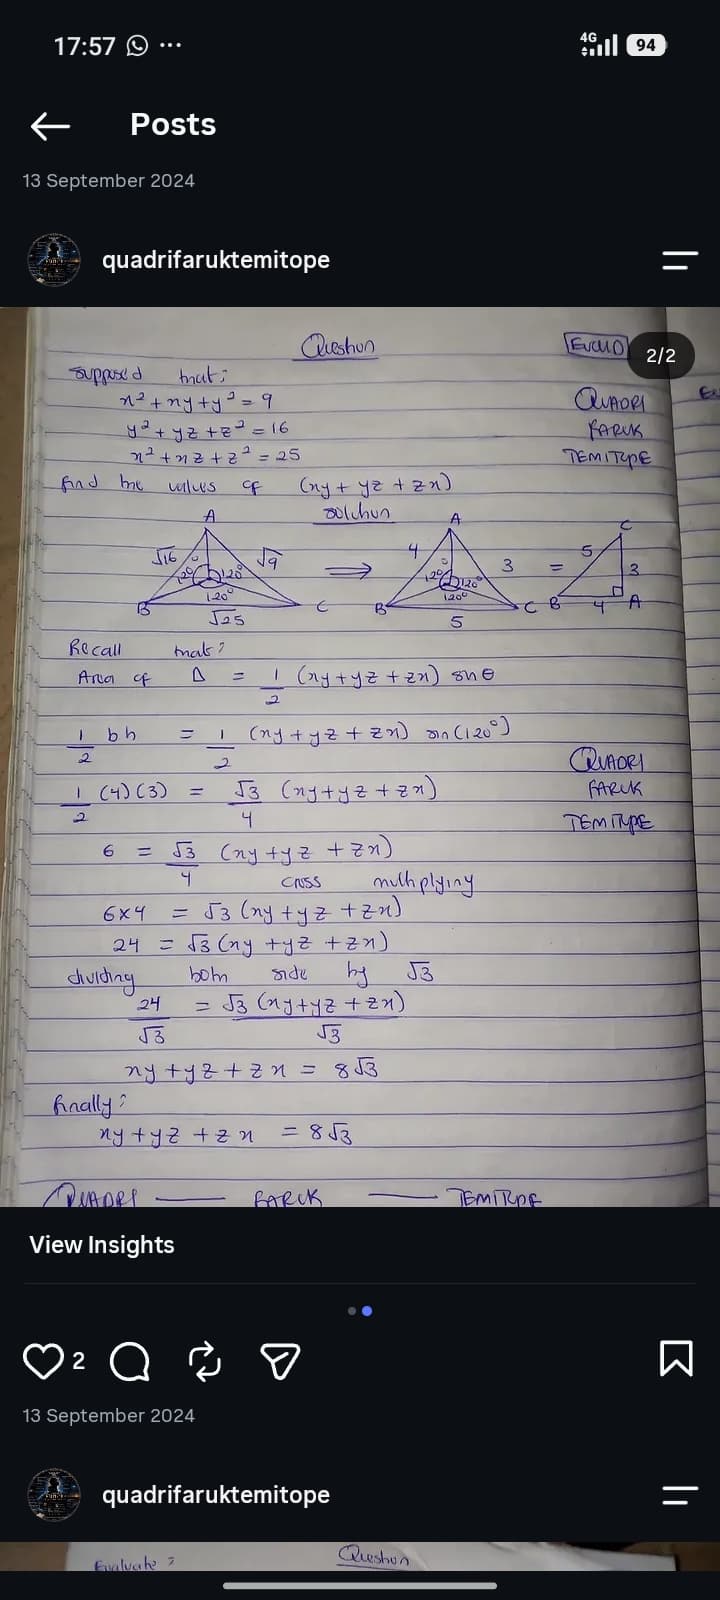 17:57 ... 4G 94
Posts
13 September 2024
quadrifaruktemitope
2/2
Question EUCLID
supposed that:
x² + xy + y² = 9 QUADRI
y² + yz + z² = 16 FARUK
x² + xz + z² = 25 TEMITOPE
find the values of (xy + yz + zx)
solution
A A C
√16 120° 120° √9 ⟹ 4 120° 120° 3 = 5 3
120° 120°
B √25 C B 5 C B 4 A
Recall that:
Area of Δ = 1/2 (xy + yz + zx) sin θ
1/2 bh = 1/2 (xy + yz + zx) sin (120°)
QUADRI
1/2 (4)(3) = √3/4 (xy + yz + zx) FARUK
TEMITOPE
6 = √3/4 (xy + yz + zx)
cross multiplying
6x4 = √3 (xy + yz + zx)
24 = √3 (xy + yz + zx)
dividing both side by √3
24/√3 = √3 (xy + yz + zx)/√3
xy + yz + zx = 8√3
finally:
xy + yz + zx = 8√3
QUADRI — FARUK — TEMITOPE
View Insights
2
13 September 2024
quadrifaruktemitope
Question
Evaluate: